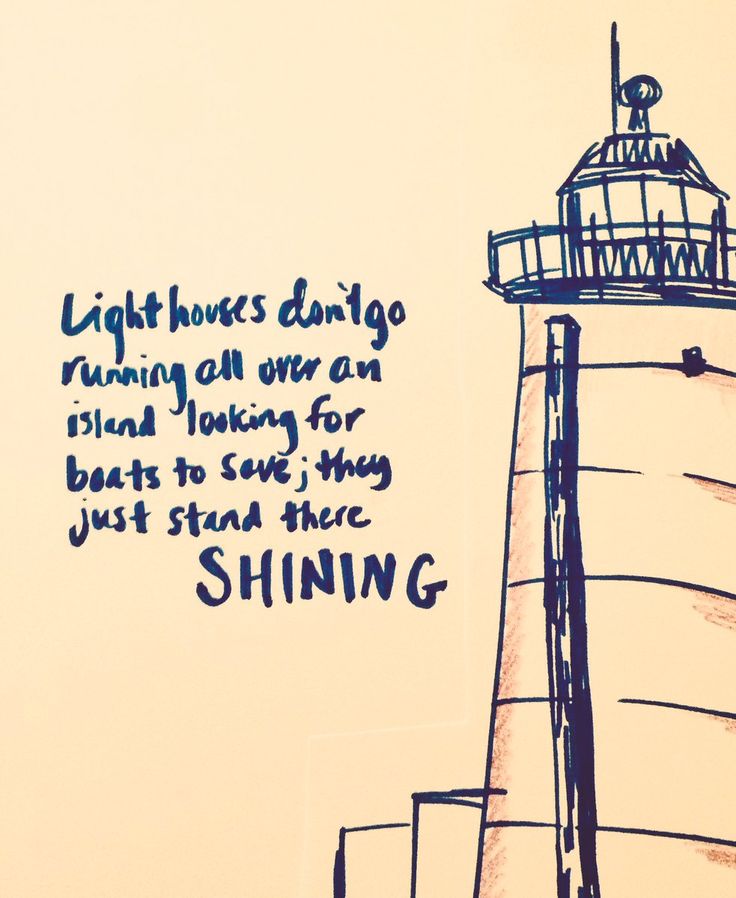 Lighthouses don't go
running all over an
island looking for
boats to save; they
just stand there
SHINING